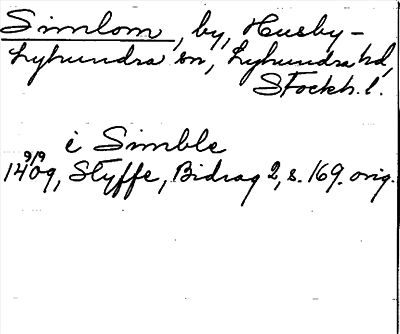 Simlom, by, Husby-
Lyhundra sn, Lyhundra hd,
Stockh. l.
i Simble
14 9/9 09, Styffe, Bidrag 2, s. 169. orig.